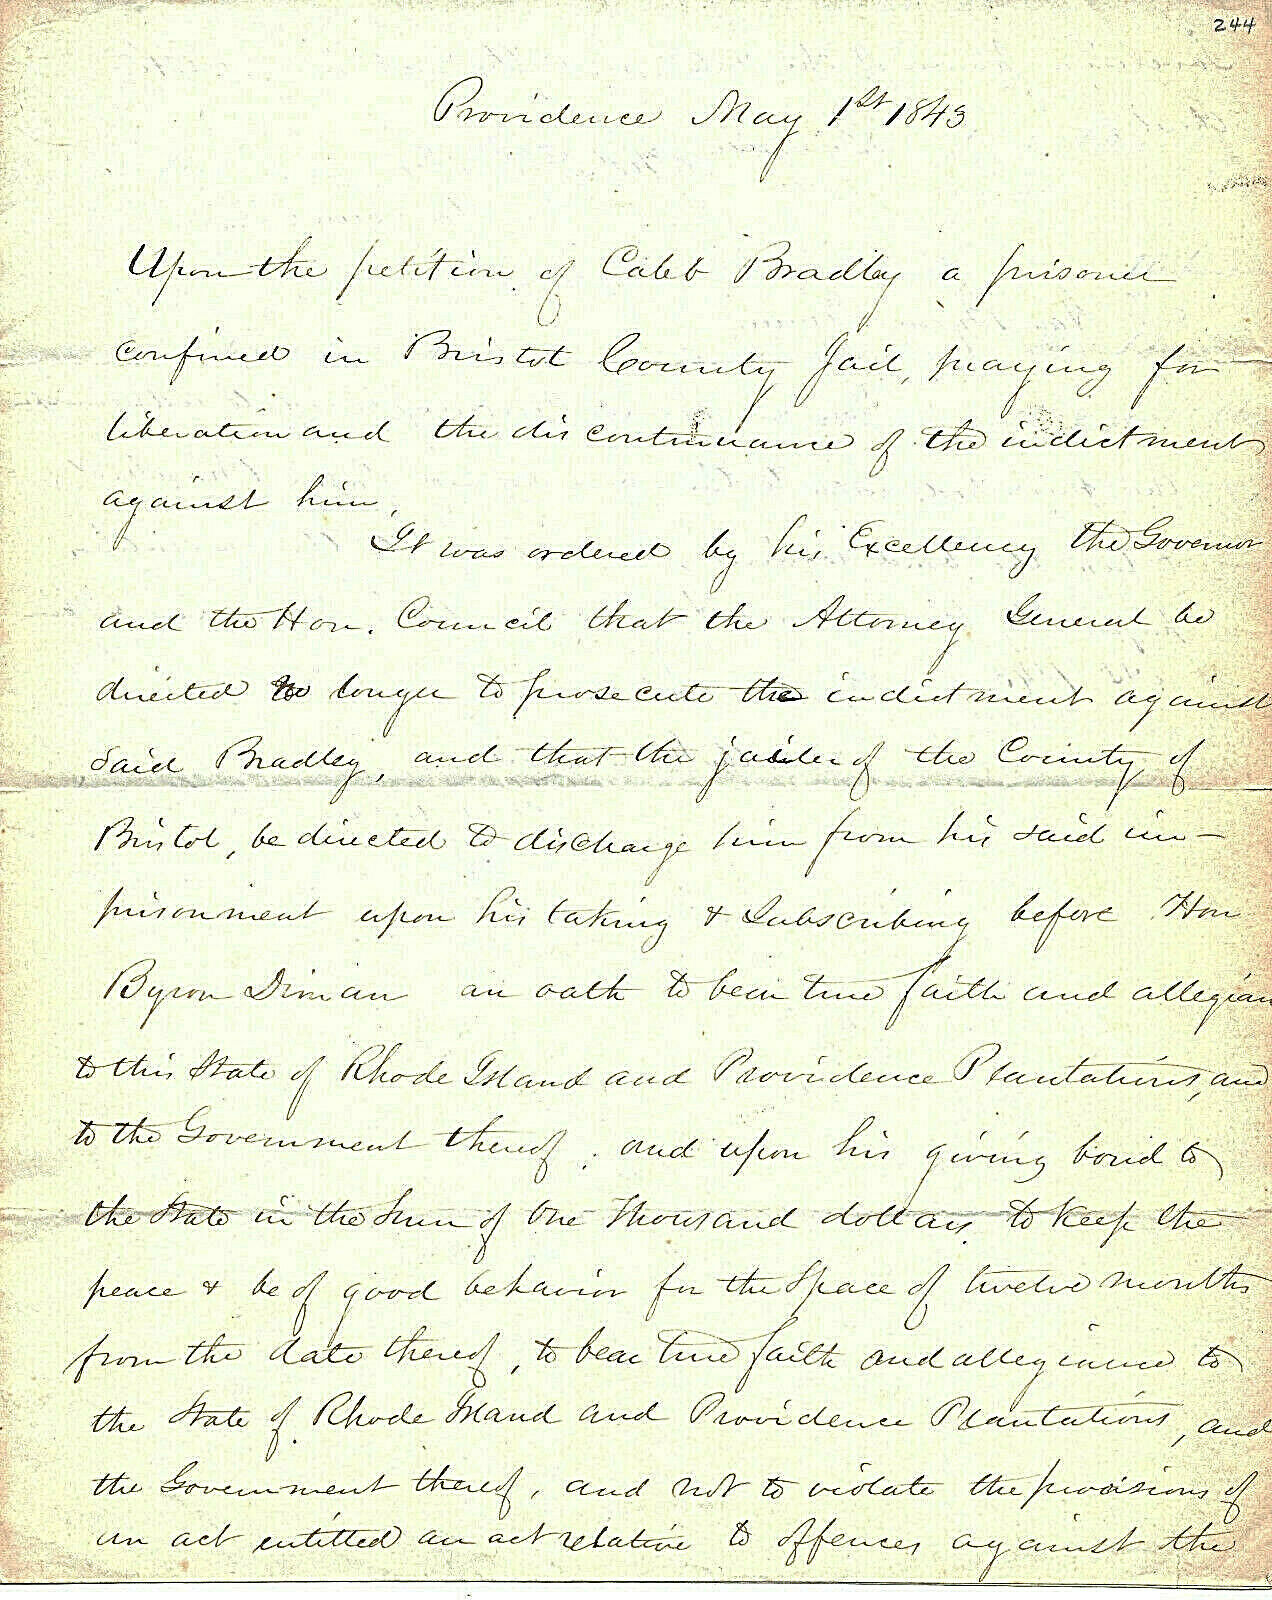 244
Providence May 1st 1843
Upon the petition of Caleb Bradley a prisoner
confined in Bristol County Jail, praying for
liberation and the discontinuance of the indictment
against him,
It was ordered by his Excellency the Governor
and the Hon. Council that the Attorney General be
directed no longer to prosecute the indictment against
said Bradley, and that the jailer of the County of
Bristol, be directed to discharge him from his said im-
prisonment upon his taking & subscribing before Hon
Byron Diman an oath to bear true faith and allegian
to this State of Rhode Island and Providence Plantations, and
to the Government thereof; and upon his giving bond to
the State in the sum of One Thousand dollars to keep the
peace & be of good behavior for the space of twelve months
from the date thereof, to bear true faith and allegiance to
the State of Rhode Island and Providence Plantations, and
the Government thereof, and not to violate the provisions of
an act entitled an act relative to offences against the